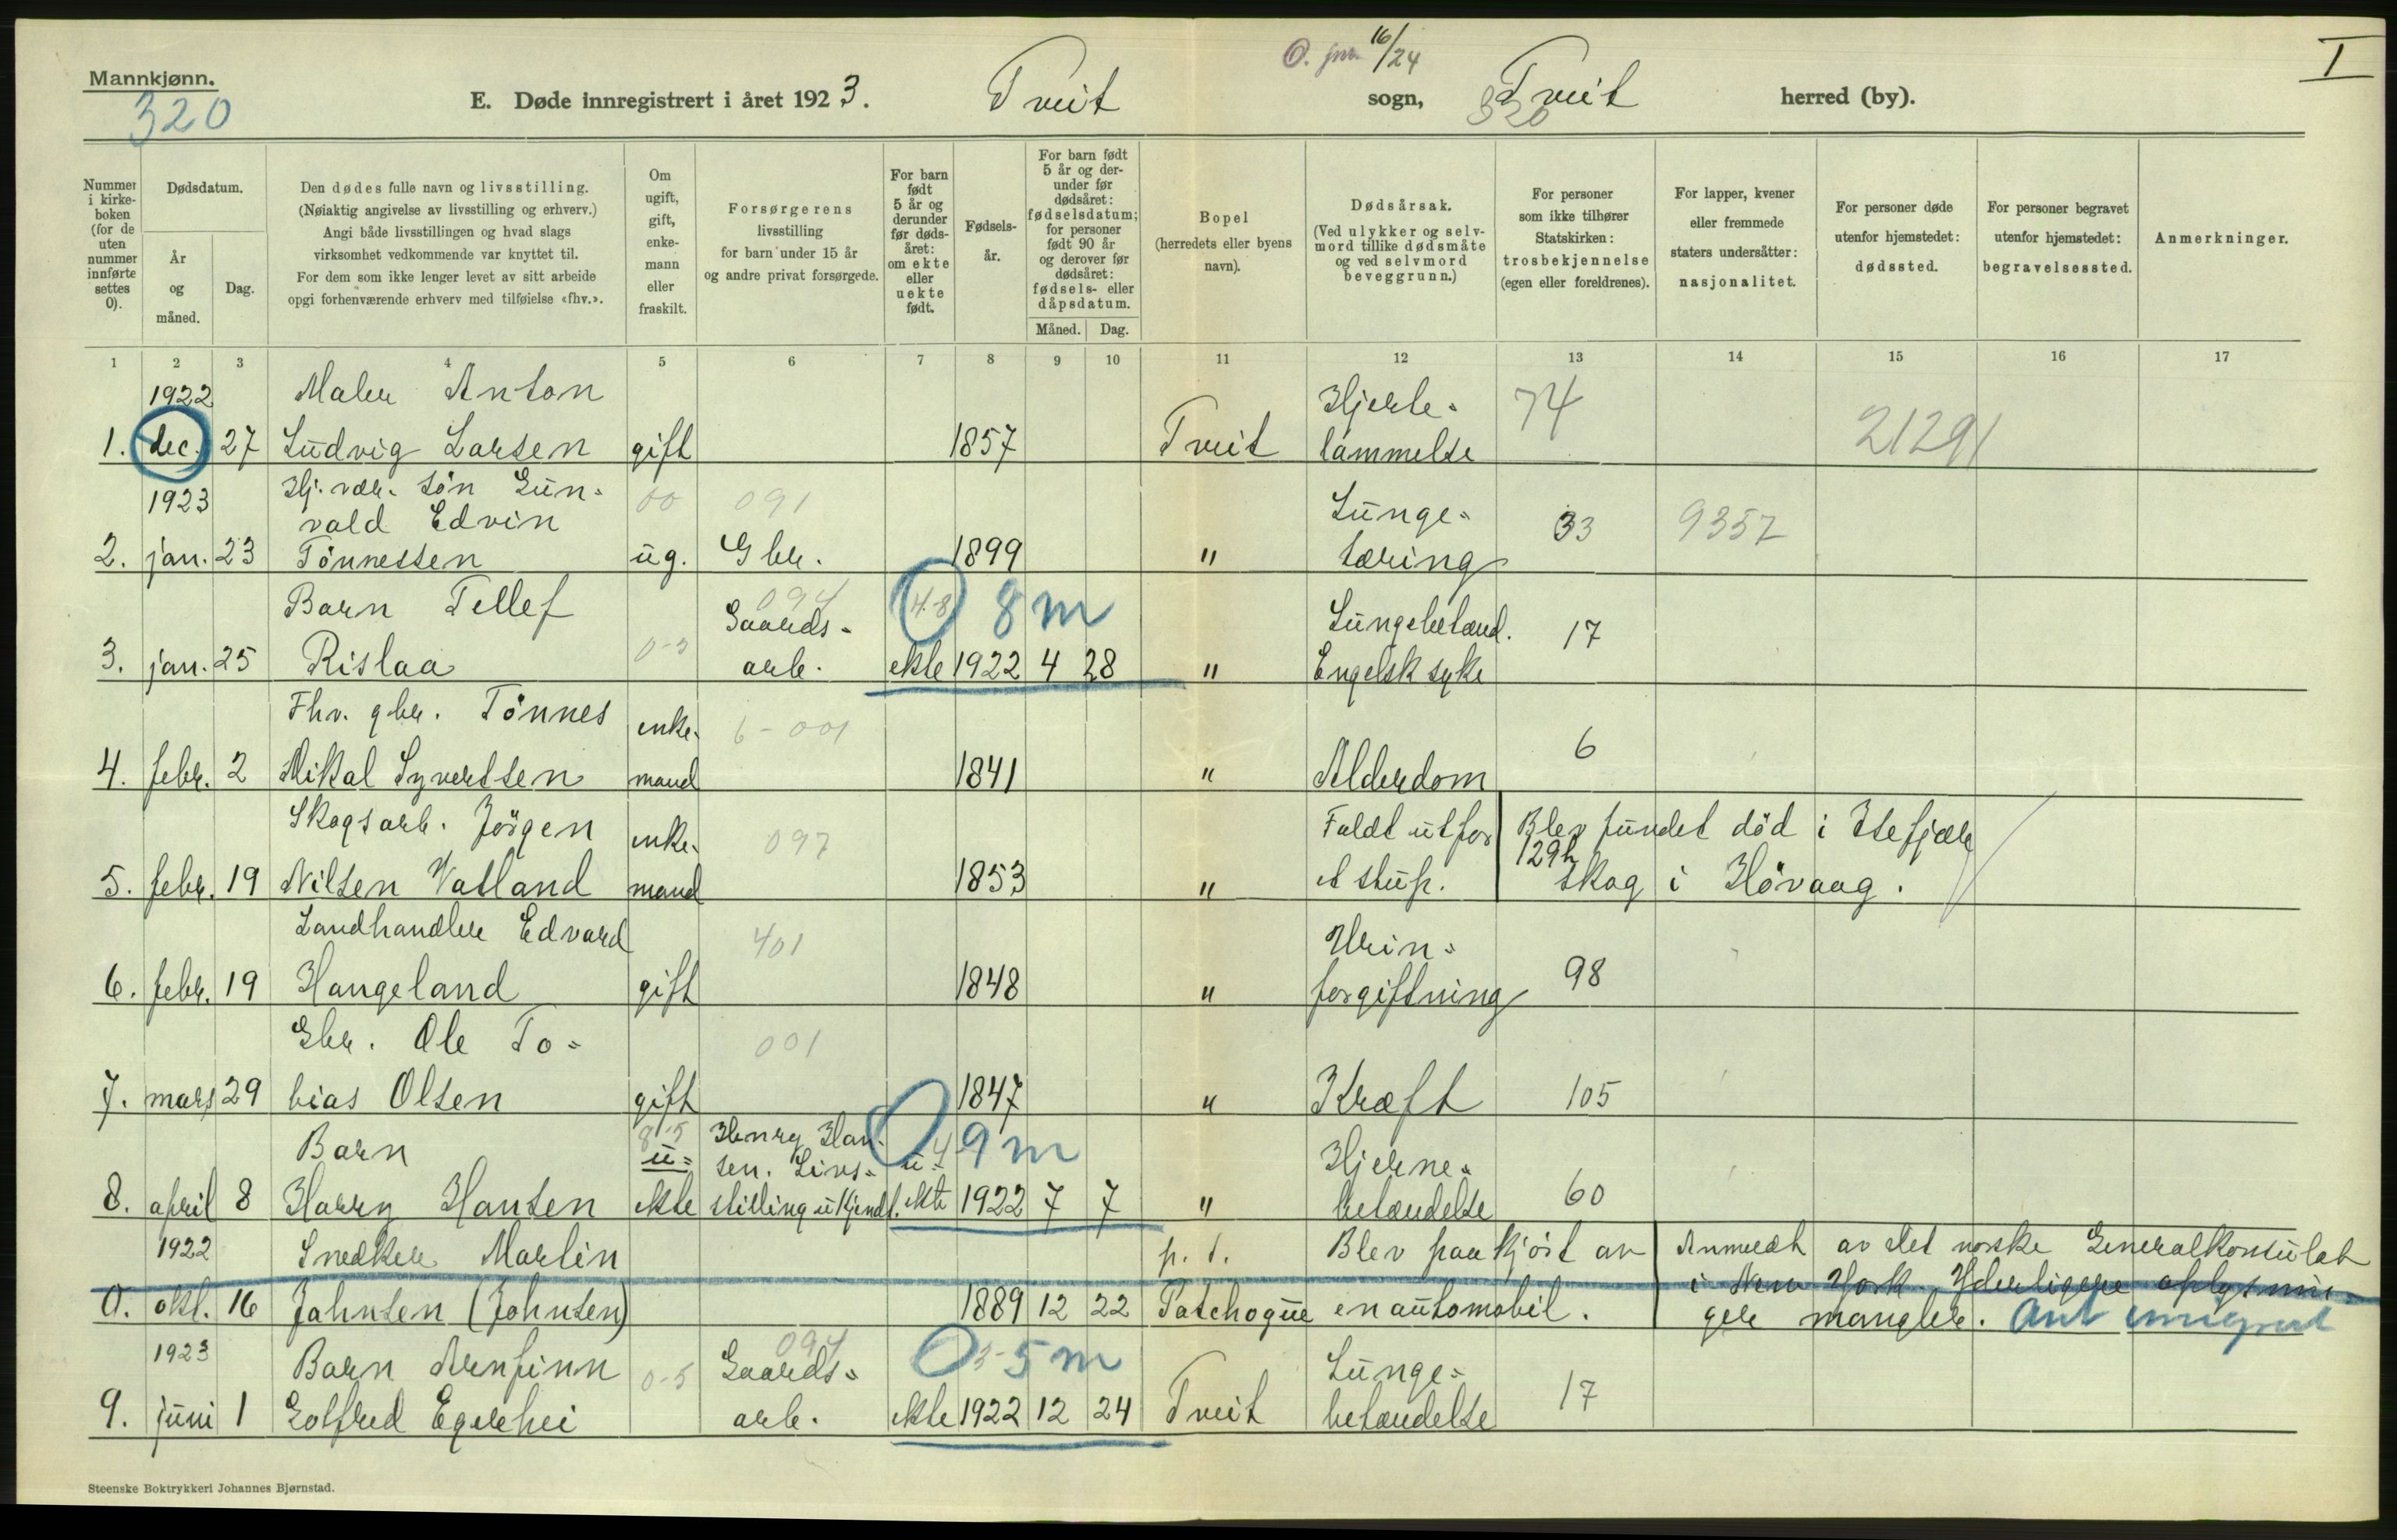 Mannkjønn.
320
E. Døde innregistrert i året 1923.
Tveit
16/24
sogn,
Tveit
320
herred (by).
I
Nummer i kirkeboken (for de uten nummer innførte settes 0).
Dødsdatum.
År og måned.
Dag.
Den dødes fulle navn og livsstilling.
(Nøiaktig angivelse av livsstilling og erhverv.)
Angi både livsstillingen og hvad slags
virksomhet vedkommende var knyttet til.
For dem som ikke lenger levet av sitt arbeide
opgi forhenværende erhverv med tilføielse «fhv.».
Om ugift, gift, enkemann eller fraskilt.
Forsørgerens
livsstilling
for barn under 15 år
og andre privat forsørgede.
For barn født 5 år og derunder før dødsåret: om ekte eller uekte født.
Fødselsår.
For barn født 5 år og derunder før dødsåret: fødselsdatum; for personer født 90 år og derover før dødsåret: fødsels- eller dåpsdatum.
Måned. Dag.
Bopel
(herredets eller byens
navn).
Dødsårsak.
(Ved ulykker og selvmord tillike dødsmåte og ved selvmord beveggrunn.)
For personer
som ikke tilhører
Statskirken:
trosbekjennelse
(egen eller foreldrenes).
For lapper, kvener
eller fremmede
staters undersåtter:
nasjonalitet.
For personer døde
utenfor hjemstedet:
dødssted.
For personer begravet
utenfor hjemstedet:
begravelsessted.
Anmerkninger.
1 2 3 4 5 6 7 8 9 10 11 12 13 14 15 16 17
1922 Maler Anton Hjerte- 74
1. dec. 27 Ludvig Larsen gift 1857 Tveit lammelse 21291
1923 Hj. vær. søn Gun- 00 091 Lunge- 33 9357
vald Edvin
2. jan. 23 Tønnessen ug. Gbr. 1899 " tæring
Barn Tellef 094 Gaards- 4-8 8 m Lungebetænd. 17
3. jan. 25 Rislaa 0-5 arb. ekte 1922 4 28 " Engelsk syke
Fhv. gbr. Tønnes enke- 6-001 6
4. febr. 2 Mikal Syvertsen mand 1841 " Alderdom
Skogsarb. Jørgen enke- 097 Faldt utfor Blev fundet død i Stefjær
129h
5. febr. 19 Nilsen Vatland mand 1853 " et stup. skog i Høvaag.
Landhandler Edvard 401 Urin- 98
6. febr. 19 Hangeland gift 1848 " forgiftning
Gbr. Ole To- 001
7. mars 29 bias Olsen gift 1847 " Kræft 105
Barn u- Henry Han- u- 9 m Hjerne-
sen. Livs-
8. april 8 Harry Hansen ekte stilling ukjendt. ekte 1922 7 7 " betændelse 60
1922 Snedker Martin p. t. Blev paakjørt av Anmeldt av det norske Generalkonsulat
i New York. Yderligere oplysnin-
0. okt. 16 Jahnsen (Johnsen) 1889 12 22 Patchogue en automobil. ger mangler. Ant emigrert
1923 Barn Arnfinn 0-5 094 Gaards- 5 m Lunge- 17
9. juni 1 Golfred Egerhei arb. ekte 1922 12 24 Tveit betændelse
Steenske Boktrykkeri Johannes Bjørnstad.